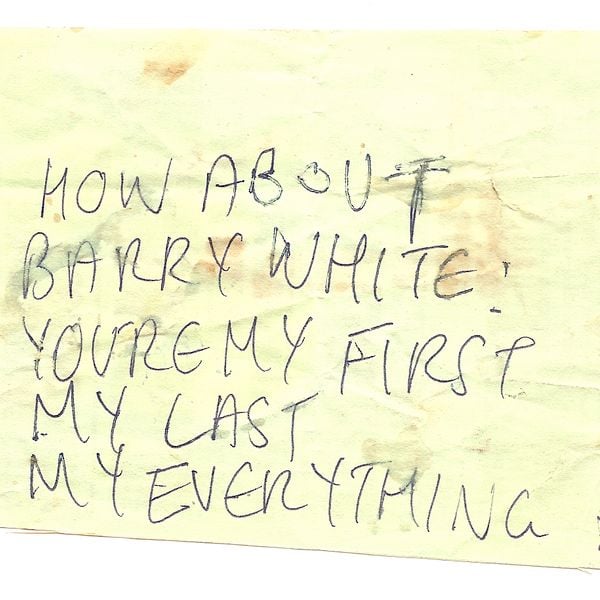 HOW ABOUT
BARRY WHITE:
YOURE MY FIRST
MY LAST
MY EVERYTHING